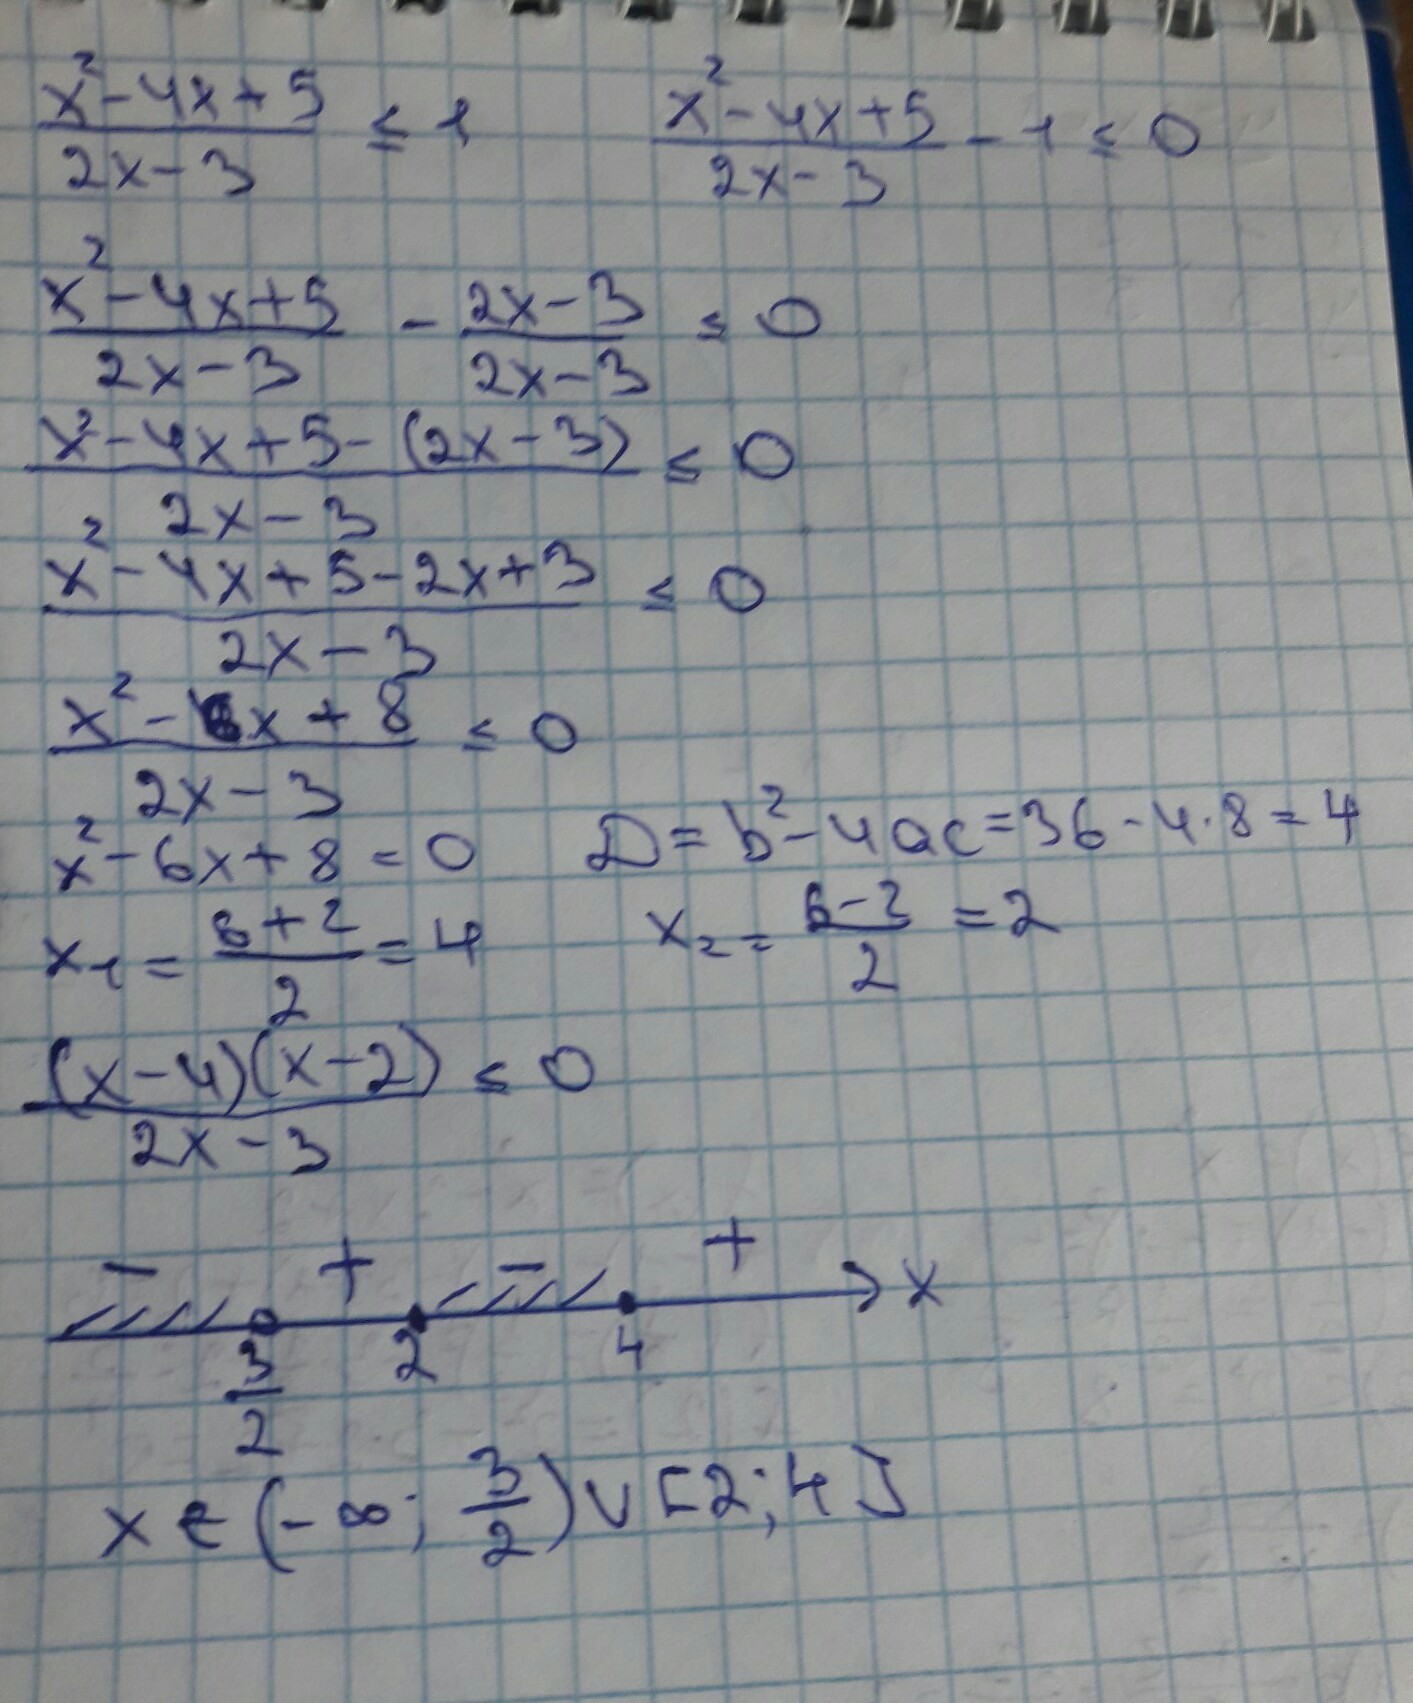 (x² - 4x + 5)/(2x - 3) ≤ 1    (x² - 4x + 5)/(2x - 3) - 1 ≤ 0
(x² - 4x + 5)/(2x - 3) - (2x - 3)/(2x - 3) ≤ 0
(x² - 4x + 5 - (2x - 3))/(2x - 3) ≤ 0
(x² - 4x + 5 - 2x + 3)/(2x - 3) ≤ 0
(x² - 6x + 8)/(2x - 3) ≤ 0
x² - 6x + 8 = 0    D = b² - 4ac = 36 - 4·8 = 4
x₁ = (6 + 2)/2 = 4    x₂ = (6 - 2)/2 = 2
((x - 4)(x - 2))/(2x - 3) ≤ 0
- + - + x
3/2 2 4
x ∈ (-∞; 3/2) ∪ [2; 4]